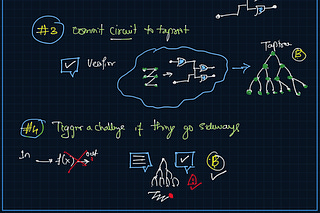 #3 Commit Circuit to taproot
Taptree
Verifier
B
#4 Trigger a challenge if things go sideways
In f(x) out
B